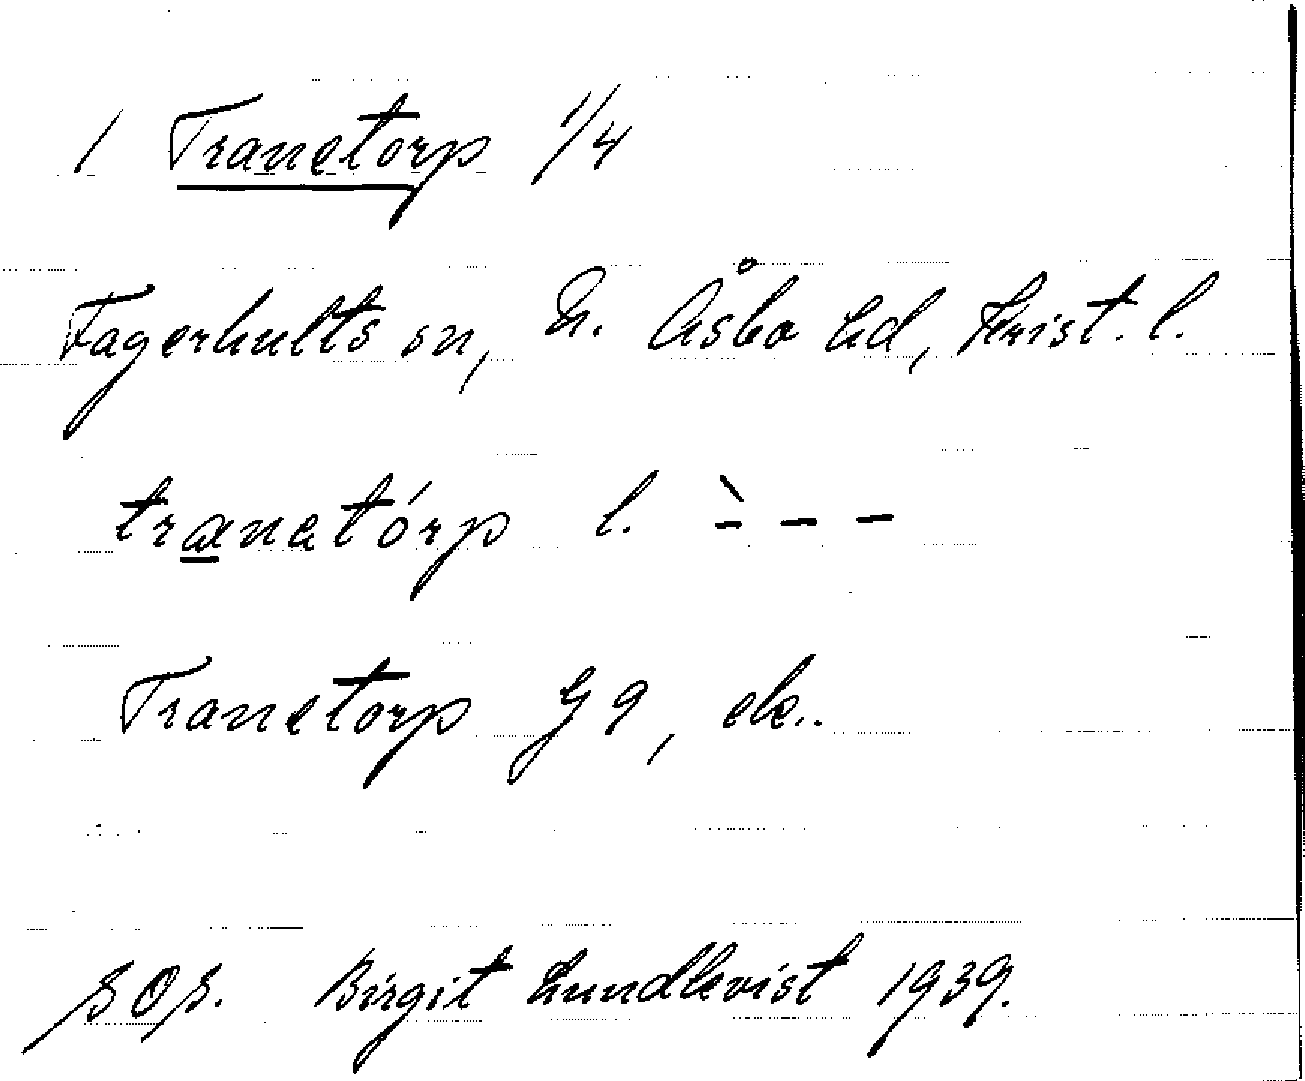 1 Tranetorp 1/4
Fagerhults sn, N. Åsbo hd, Krist. l.
tranetórp l. ˋ- - -
Tranetorp G 9, ek..
SOS. Birgit Lundkvist 1939.